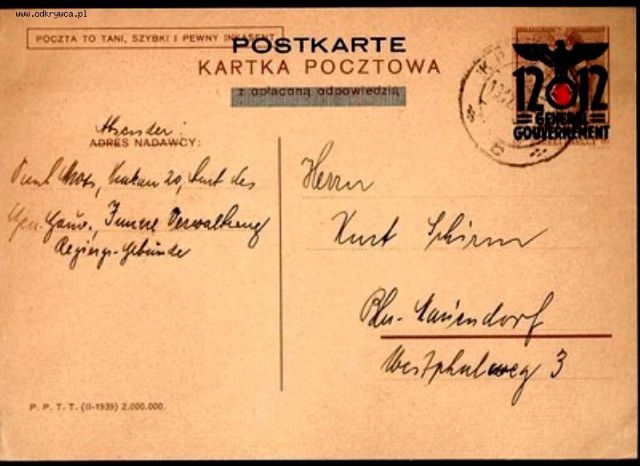 www.odkrywca.pl
POCZTA TO TANI, SZYBKI I PEWNY INKASENT
POSTKARTE
KARTKA POCZTOWA
z opłaconą odpowiedzią
12 12
GENERAL
GOUVERNEMENT
Absender:
ADRES NADAWCY:
Krakau 20, Amt des
Gen. Gouv., Innere Verwaltung
Regiergs-Gebäude
Herrn
Kurt Schirm
Bln-Mariendorf
Westphalweg 3
P. P. T. T. (II-1939) 2.000.000.